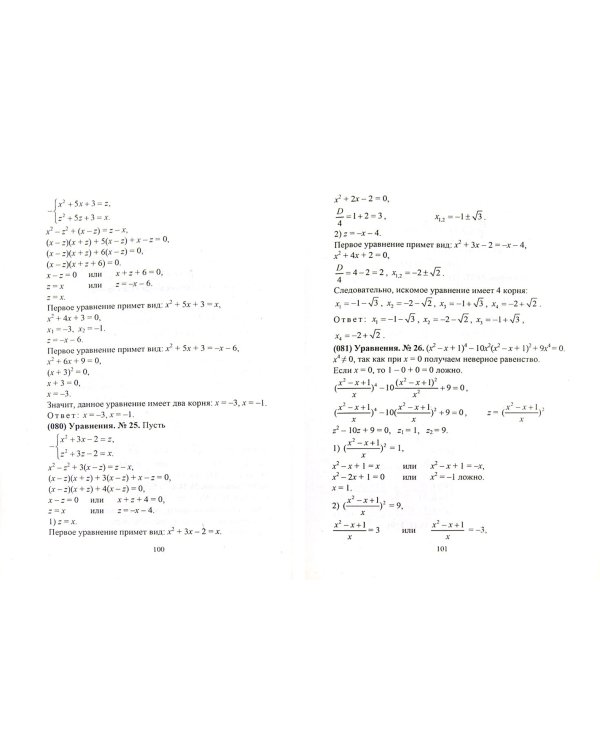 x² + 5x + 3 = z,
z² + 5z + 3 = x.
x² – z² + (x – z) = z – x,
(x – z)(x + z) + 5(x – z) + x – z = 0,
(x – z)(x + z) + 6(x – z) = 0,
(x – z)(x + z + 6) = 0.
x – z = 0 или x + z + 6 = 0,
z = x или z = –x – 6.
z = x.
Первое уравнение примет вид: x² + 5x + 3 = x,
x² + 4x + 3 = 0,
x₁ = –3, x₂ = –1.
z = –x – 6.
Первое уравнение примет вид: x² + 5x + 3 = –x – 6,
x² + 6x + 9 = 0,
(x + 3)² = 0,
x + 3 = 0,
x = –3.
Значит, данное уравнение имеет два корня: x = –3, x = –1.
Ответ: x = –3, x = –1.
(080) Уравнения. № 25. Пусть
x² + 3x – 2 = z,
z² + 3z – 2 = x.
x² – z² + 3(x – z) = z – x,
(x – z)(x + z) + 3(x – z) + x – z = 0,
(x – z)(x + z) + 4(x – z) = 0,
x – z = 0 или x + z + 4 = 0,
z = x или z = –x – 4.
1) z = x.
Первое уравнение примет вид: x² + 3x – 2 = x.
100
x² + 2x – 2 = 0,
D/4 = 1 + 2 = 3, x₁,₂ = –1 ± √3.
2) z = –x – 4.
Первое уравнение примет вид: x² + 3x – 2 = –x – 4,
x² + 4x + 2 = 0,
D/4 = 4 – 2 = 2, x₁,₂ = –2 ± √2.
Следовательно, искомое уравнение имеет 4 корня:
x₁ = –1 – √3, x₂ = –2 – √2, x₃ = –1 + √3, x₄ = –2 + √2.
Ответ: x₁ = –1 – √3, x₂ = –2 – √2, x₃ = –1 + √3,
x₄ = –2 + √2.
(081) Уравнения. № 26. (x² – x + 1)⁴ – 10x²(x² – x + 1)² + 9x⁴ = 0.
x⁴ ≠ 0, так как при x = 0 получаем неверное равенство.
Если x = 0, то 1 – 0 + 0 = 0 ложно.
((x² – x + 1)/x)⁴ – 10(x² – x + 1)²/x² + 9 = 0,
((x² – x + 1)/x)⁴ – 10((x² – x + 1)/x)² + 9 = 0, z = ((x² – x + 1)/x)²
z² – 10z + 9 = 0, z₁ = 1, z₂ = 9.
1) ((x² – x + 1)/x)² = 1,
x² – x + 1 = x или x² – x + 1 = –x,
x² – 2x + 1 = 0 или x² = –1 ложно.
x = 1.
2) ((x² – x + 1)/x)² = 9,
(x² – x + 1)/x = 3 или (x² – x + 1)/x = –3,
101